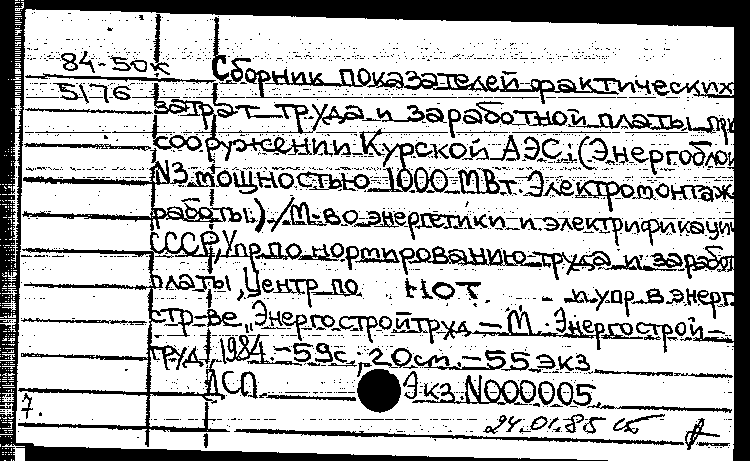 84-50к Сборник показателей фактических
5176 затрат труда и заработной платы при
сооружении Курской АЭС: (Энергоблок
N3 мощностью 1000 МВт. Электромонтаж
работы.) / М-во энергетики и электрификации
СССР, Упр. по нормированию труда и заработ
платы, Центр по НОТ и упр. в энерг
стр-ве "Энергостройтруд. – М.: Энергострой-
труд, 1984. – 59с.; 20см. – 55 экз
ДСП Экз. N000005
7.
24.01.85